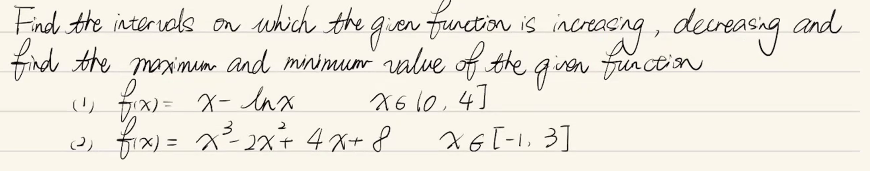 Find the intervals on which the given function is increasing, decreasing and
find the maximum and minimum value of the given function
(1) f(x) = x - ln x x ∈ (0, 4]
(2) f(x) = x³ - 2x² + 4x + 8 x ∈ [-1, 3]